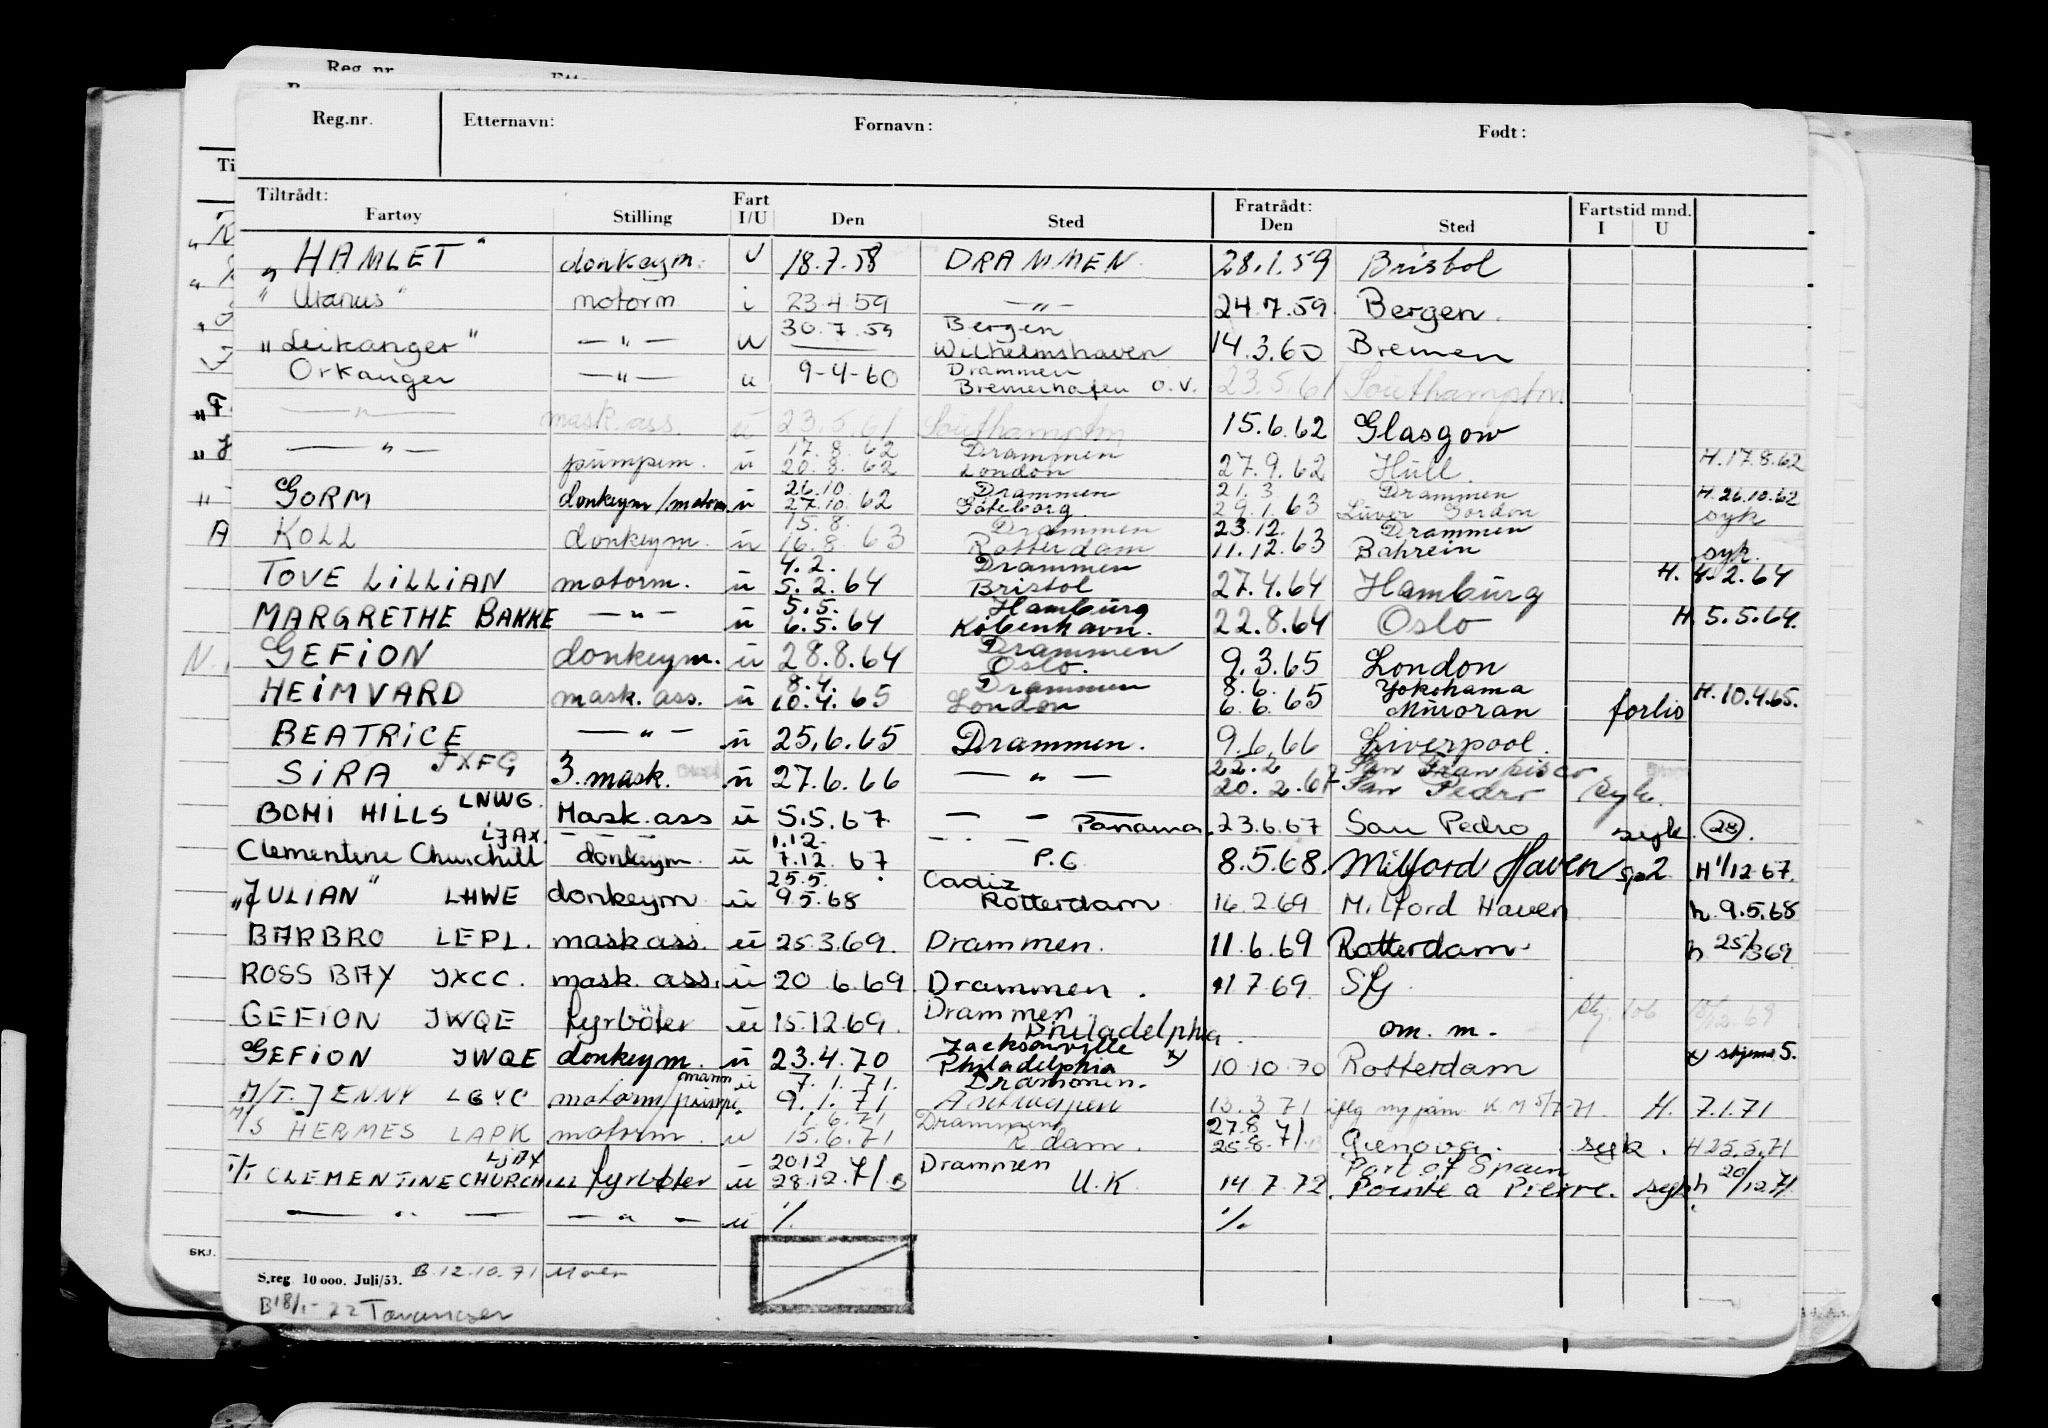 Reg. nr.
Reg.nr. Etternavn: Fornavn: Født:
Tiltrådt: Fart Fratrådt: Fartstid mnd.
Fartøy Stilling I/U Den Sted Den Sted I U
„HAMLET" donkeym. u 18.7.58 DRAMMEN 28.1.59 Bristol
"Uranus" motorm i 23.4.59 —„— 24.7.59 Bergen.
30.7.59 Bergen
„Leikanger" —„— u Wilhelmshaven 14.3.60 Bremen
Orkanger —„— u 9-4-60 Drammen
Bremerhafen o.v. 23.5.61 Southampton
—„— mask.ass. u 23.5.61 Southampton 15.6.62 Glasgow
17.8.62 Drammen H.17.8.62
—„— pumpem. u 20.8.62 London 27.9.62 Hull.
26.10. Drammen 21.3 Drammen H.26.10.62
GORM donkeym/motorm u 27.10.62 Göteborg. 29.1.63 syk
15.8. Drammen 23.12. Drammen
KOLL donkeym. u 16.8.63 Rotterdam 11.12.63 Bahrein syk.
4.2. Drammen
TOVE LILLIAN motorm. u 5.2.64 Bristol 27.4.64 Hamburg H. 4-2.64
5.5. Hamburg
MARGRETHE BAKKE —„— u 6.5.64 København. 22.8.64 Oslo H. 5.5.64.
GEFION donkeym. u 28.8.64 Drammen
Oslo. 9.3.65 London
8.4. Drammen 8.6. Yokohama H.10.4.65.
HEIMVARD mask.ass. u 10.4.65 London 6.6.65 Muroran forlis
BEATRICE —„— u 25.6.65 Drammen. 9.6.66 Liverpool.
SIRA JXFG 3.mask. u 27.6.66 —„— 22.2 San Fransisco
20.2.67 San Pedro syk.
BOMI HILLS LNWG. Mask.ass u 5.5.67 — — Panama. 23.6.67 San Pedro syk. (28).
LJAX 1.12 — —
Clementine Churchill donkeym. u 7.12.67 P.G 8.5.68. Milford Haven sp2 H 1/12.67.
25.5. Cadiz
„JULIAN" LHWE donkeym u 9.5.68 Rotterdam 16.2.69 Milford Haven h. 9.5.68
BARBRO LEPL. mask ass. u 25.3.69. Drammen. 11.6.69 Rotterdam. h 25/3 69
ROSS BAY JXCC. mask. ass. u 20.6.69. Drammen. 11 7 69.
GEFION JWQE fyrbøter u 15.12.69. Drammen
Philadelphia. om. m.
Jacksonville
GEFION JWQE donkeym. u 23.4.70 Philadelphia x) 10.10.70 Rotterdam x) skjema 5.
7.1.71. Drammen.
M/T. JENNY LGVC motorm/pumpemann u 9.1.71 Antwerpen 13.3 71 H. 7.1.71
1.6.71 Drammen 27.8
M/S HERMES LAPK motorm. u 15.6.71 R.dam. 25.8.71. Genova. syk. H 25.5.71
LJAX 20.12 Drammen Port of Spain
T/T CLEMENTINE CHURCHILL fyrbøter u 28.12.71. U.K. 14.7.72. Pointe a Pierre. syk h 20/12.71.
—„— —„— u ./. ./.
SKJ.
S.reg. 10 000. Juli/53. B.12.10.71
B18/1-72